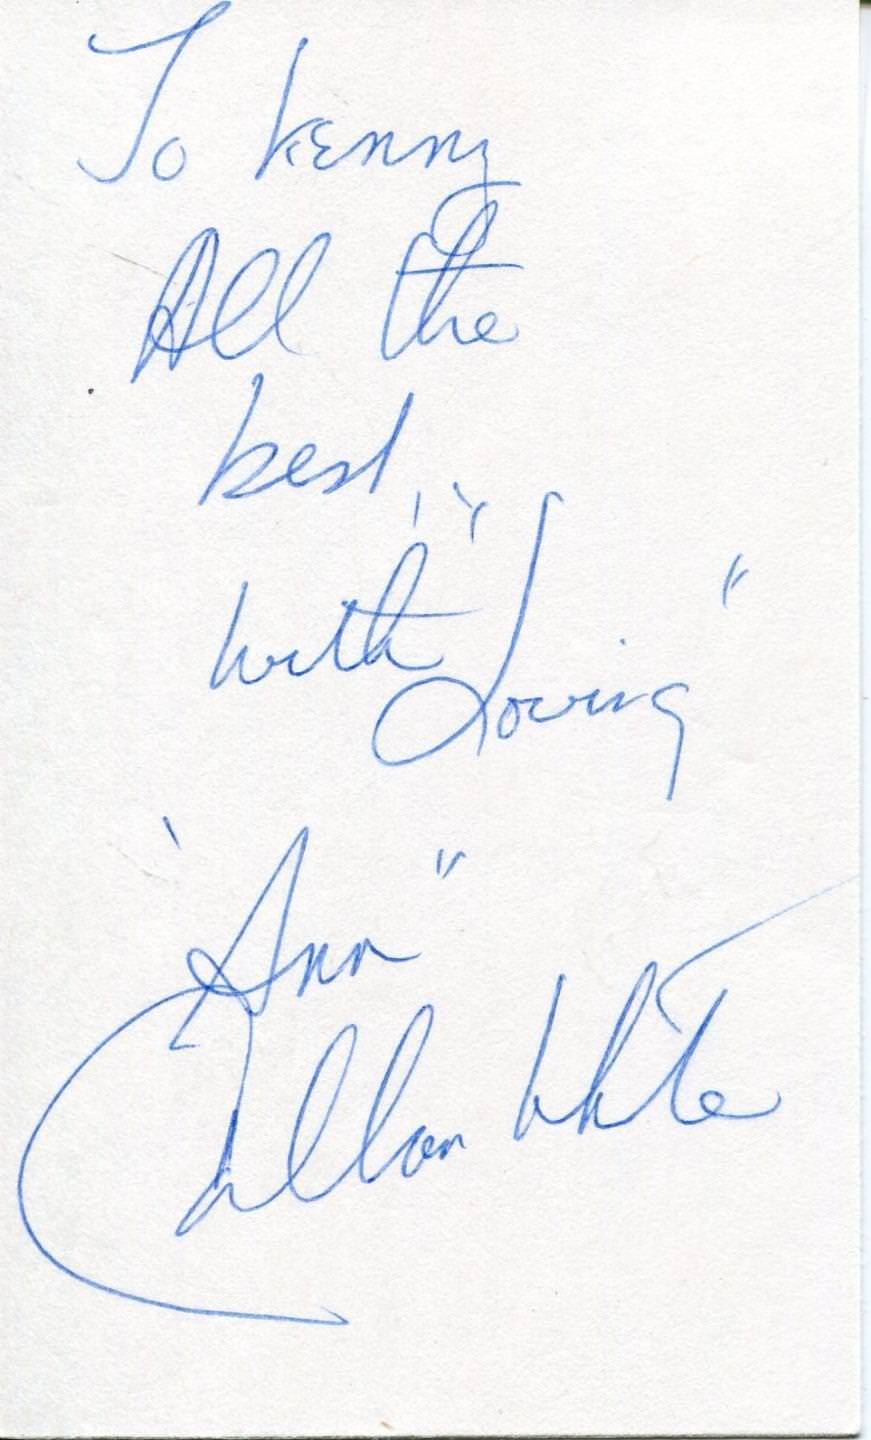 To Kenny
All the
best,
with "Loving"
"Ann"
Allan White